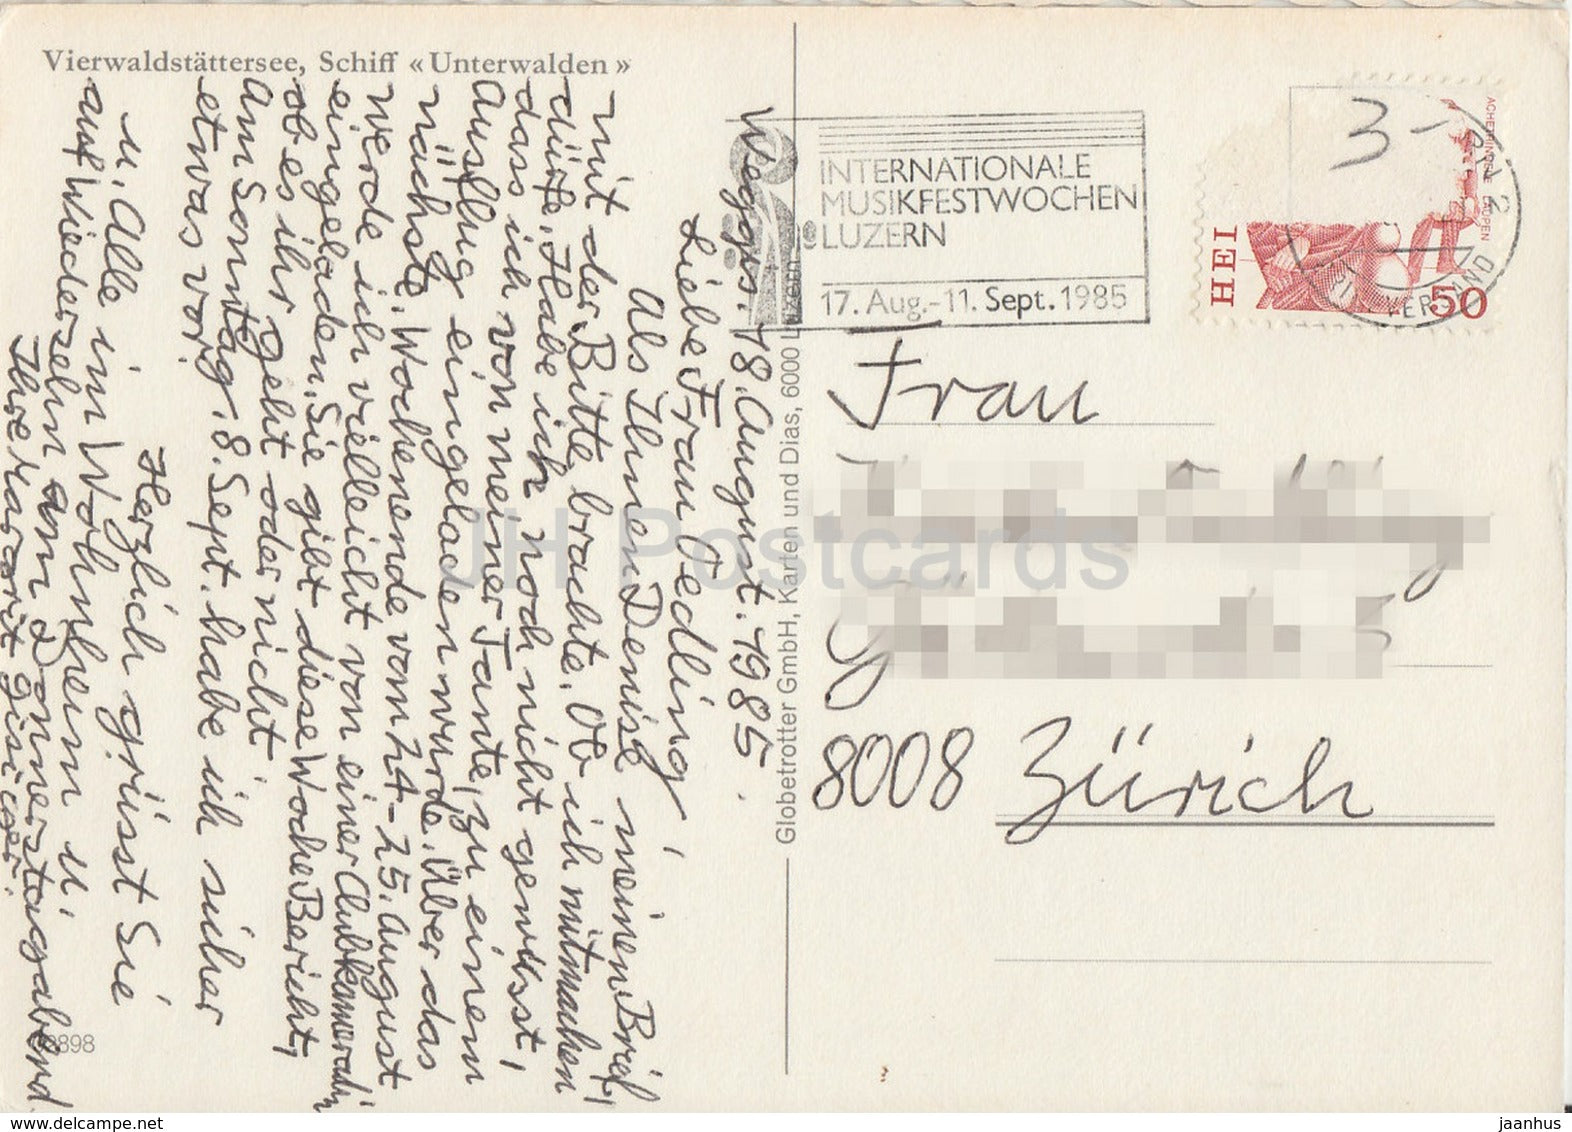 Vierwaldstättersee, Schiff «Unterwalden»
Weggis. 18. August. 1985.
Liebe Frau Oedling!
Als Ihnen Denise meinen Brief
mit der Bitte brachte. Ob ich mitmachen
dürfe, Habe ich noch nicht gewusst,
dass ich von meiner Tante, zu einem
Ausflug eingeladen wurde. Über das
nächste. Wochenende vom 24-25. August
werde ich vielleicht von einer Clubkameradin
eingeladen. Sie gibt diese Woche Bericht,
ob es ihr geht oder nicht.
Am Sonntag. 8. Sept. habe ich sicher
etwas vor!
Herzlich grüsst Sie
u. Alle im Wohnheim u.
auf Wiedersehn am Donnerstagabend.
Ihre Margrit
98898
Globetrotter GmbH, Karten und Dias, 6000 Luzern
INTERNATIONALE
MUSIKFESTWOCHEN
LUZERN
17. Aug.-11. Sept. 1985
LUZERN
3-
HE
50
VERSAND
Frau
8008 Zürich
JH Postcards
www.delcampe.net
jaanhus